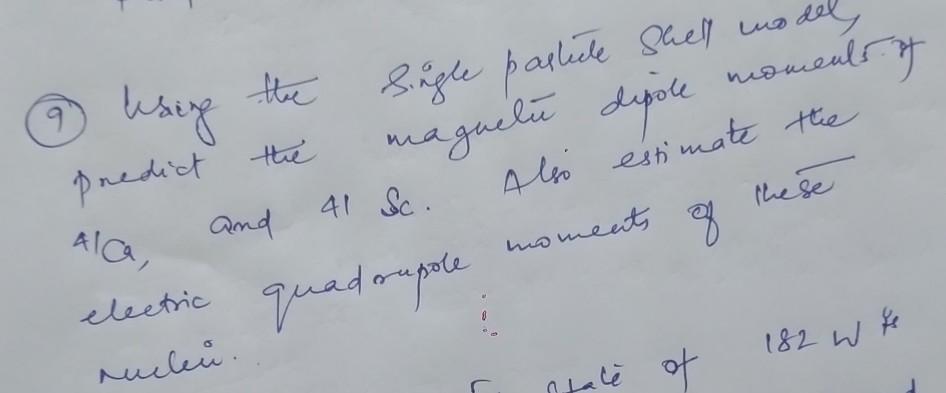 9 Using the single particle shell model,
predict the magnetic dipole moments of
41Ca, and 41 Sc. Also estimate the
electric quadrupole moments of these
nuclei.
state of 182 W